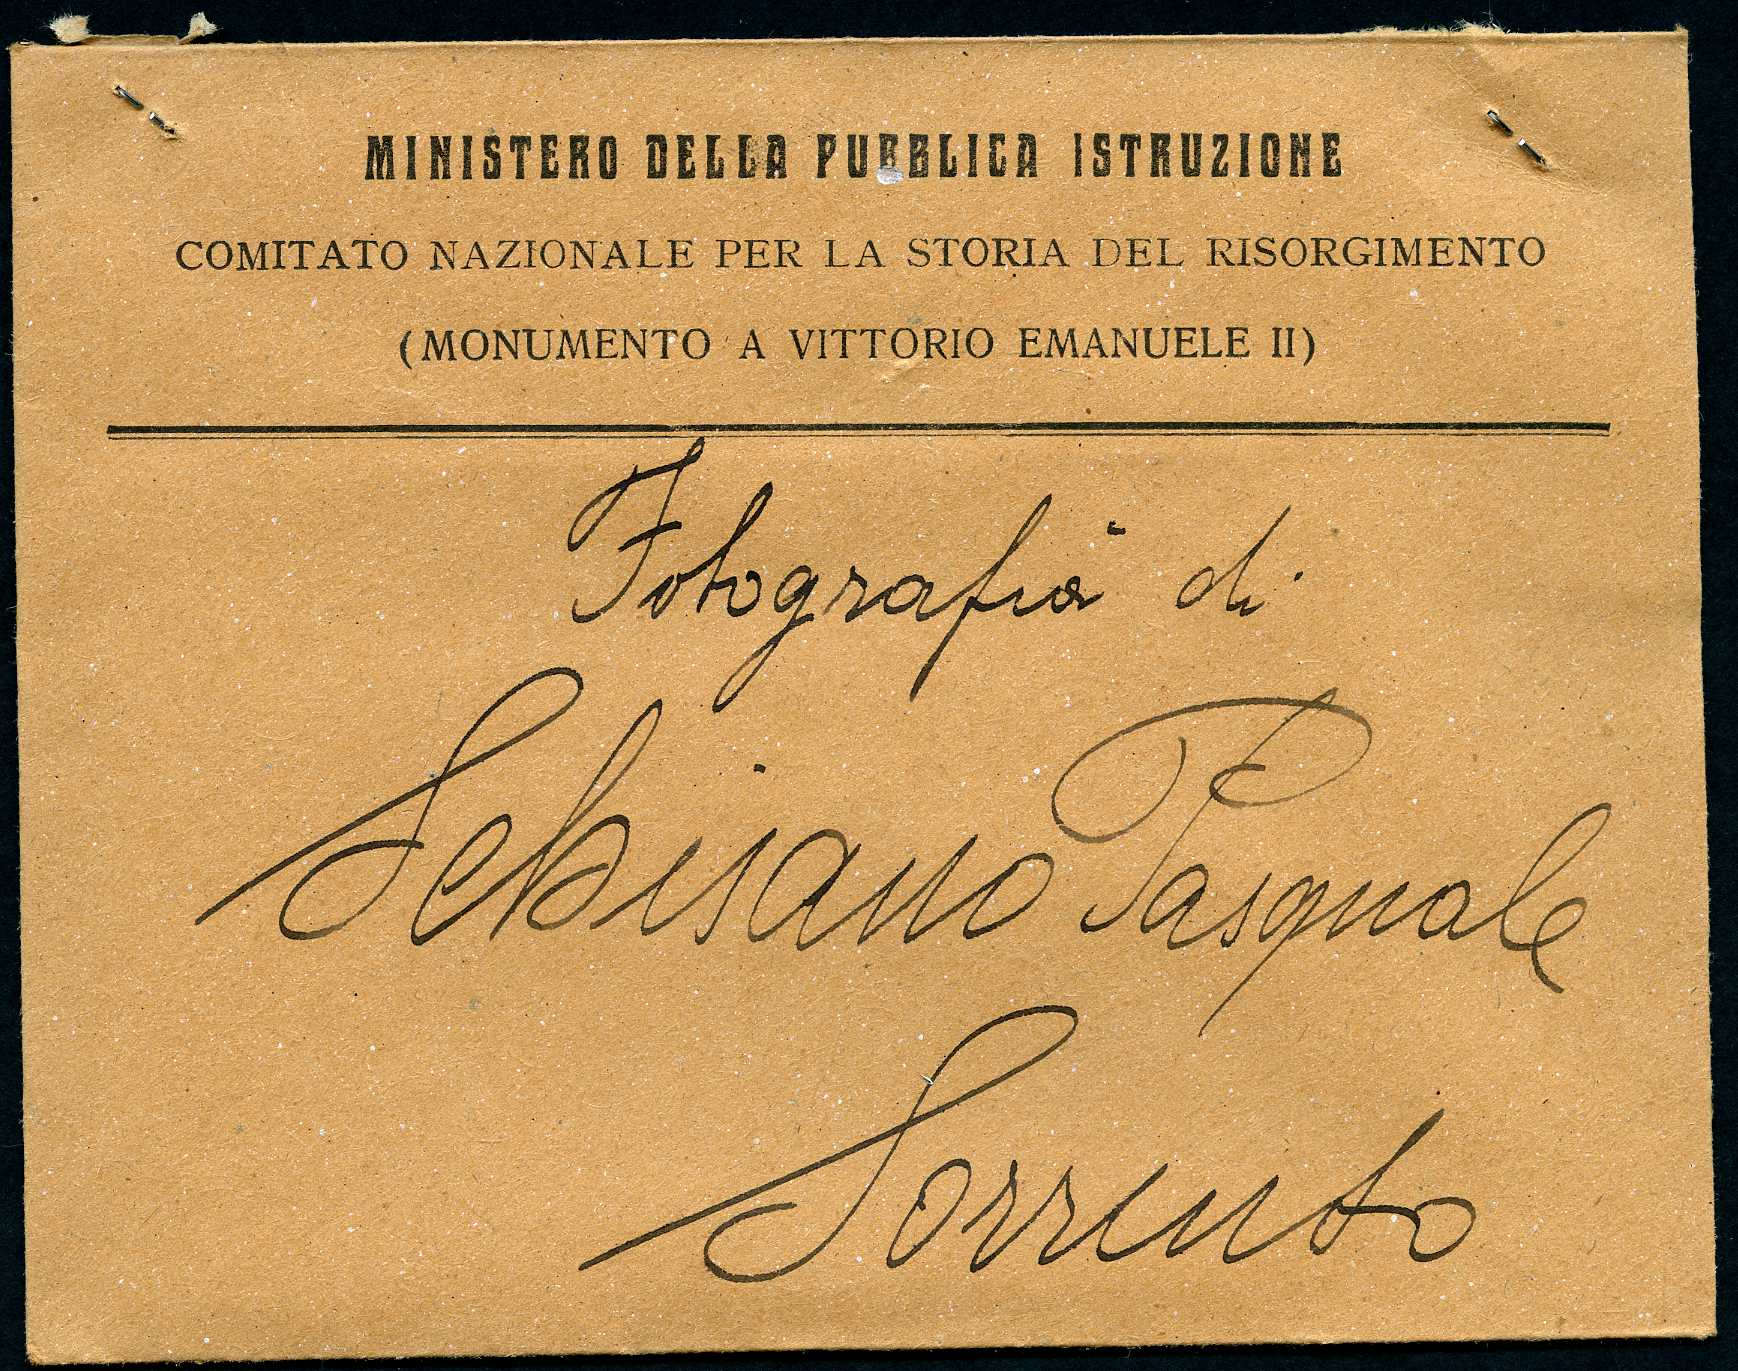 MINISTERO DELLA PUBBLICA ISTRUZIONE
COMITATO NAZIONALE PER LA STORIA DEL RISORGIMENTO
(MONUMENTO A VITTORIO EMANUELE II)
Fotografia di
Sebisano Pasquale
Sorrento